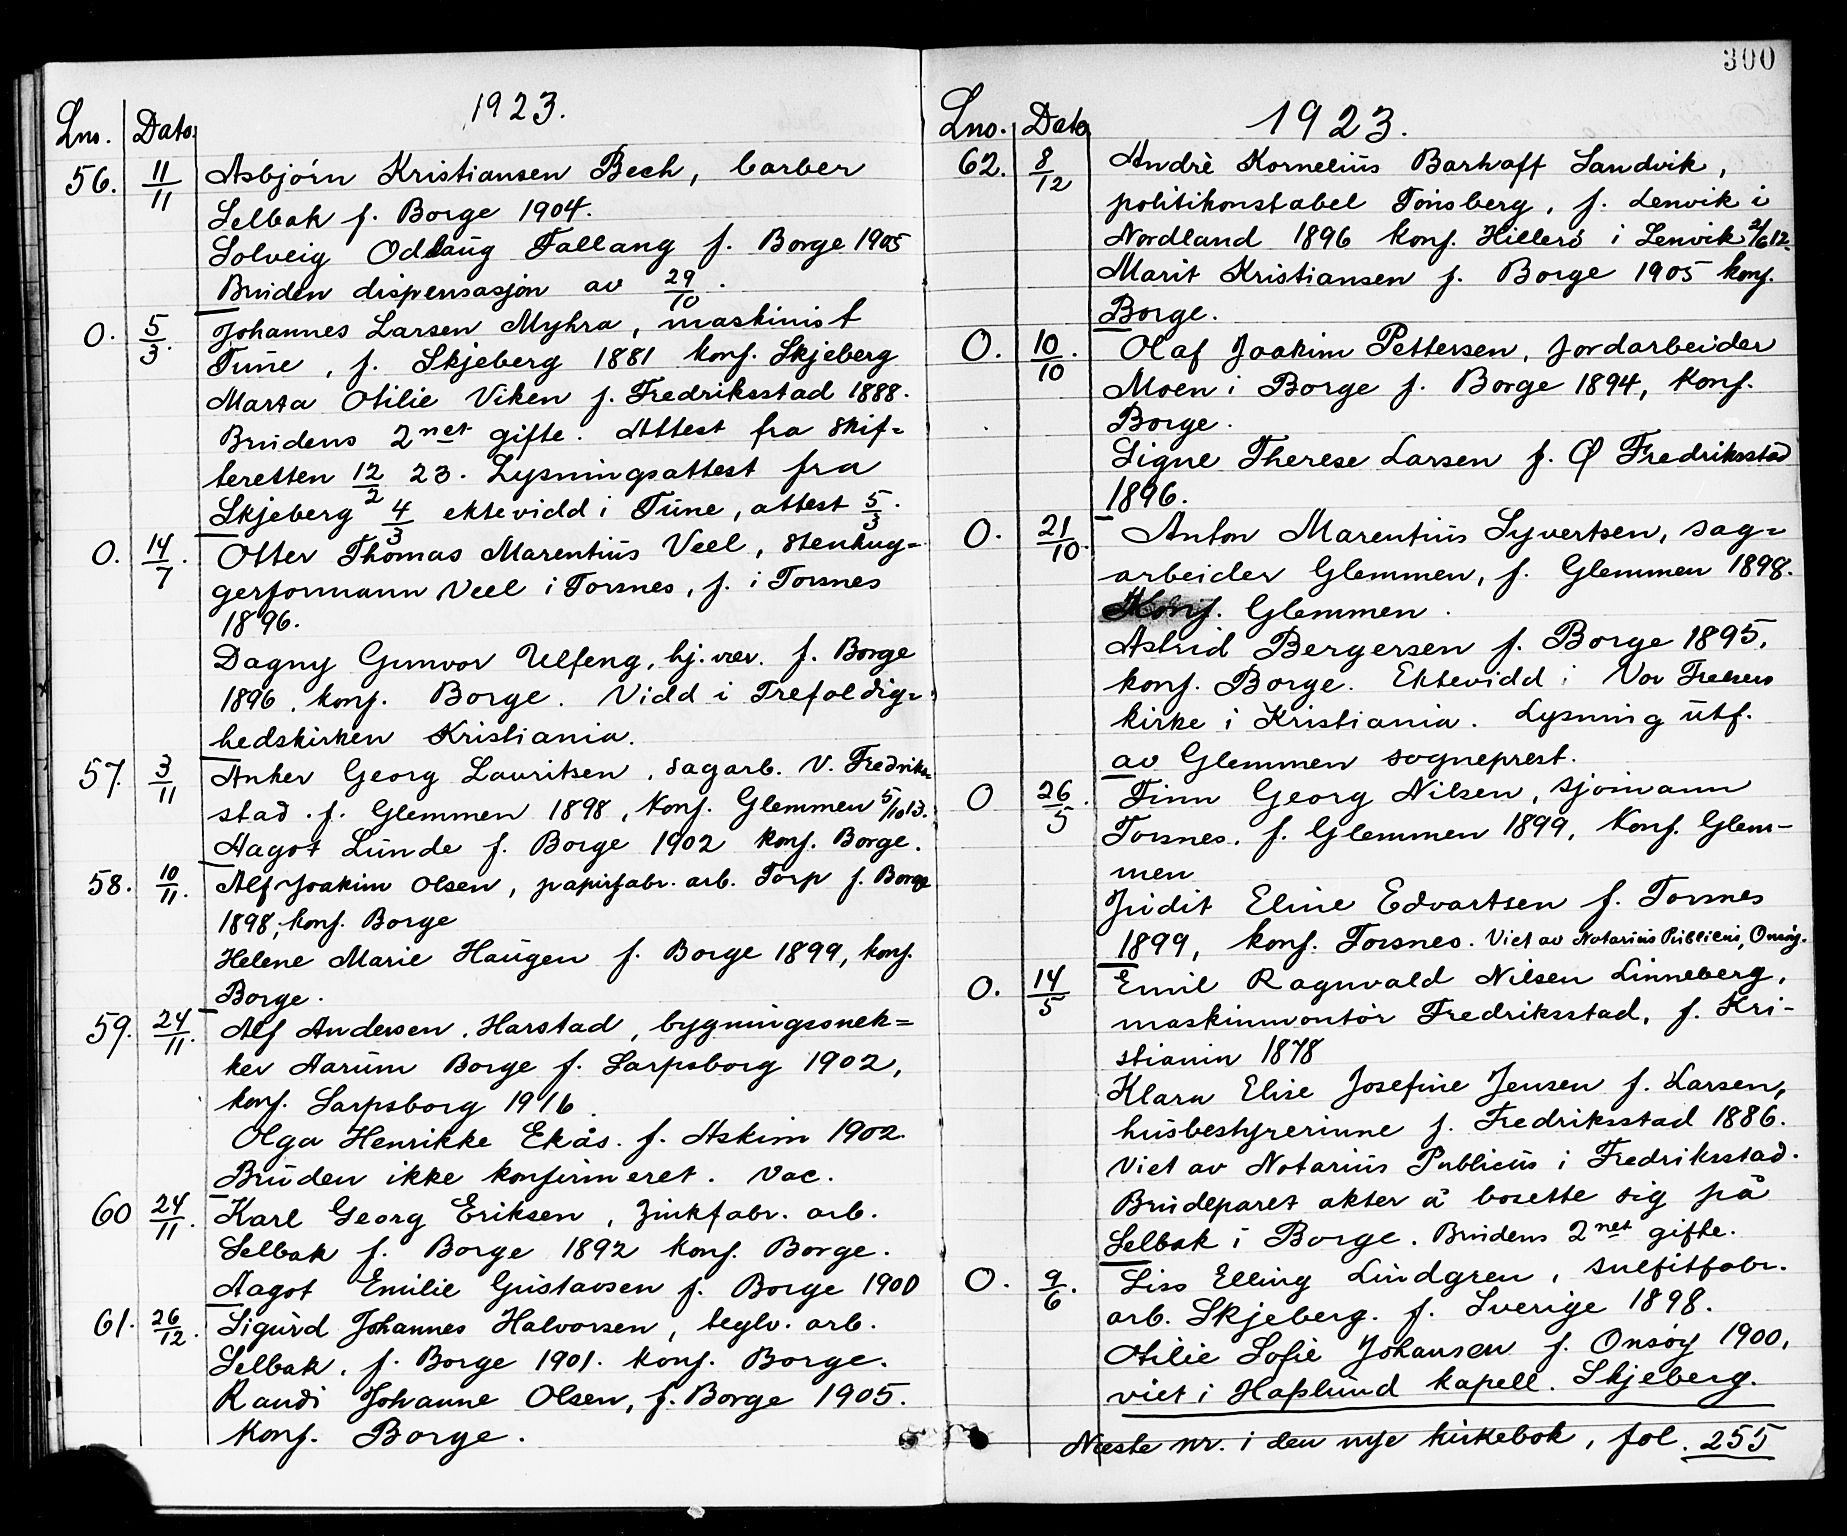 1923.
Lno. Dato
56. 11/11 Asbjörn Kristiansen Bech, barber
Selbak f. Borge 1904.
Solveig Odlaug Fallang f. Borge 1905
Bruden dispensasjon av 29/10.
O. 5/3. Johannes Larsen Myhra, maskinist
Tune, f. Skjeberg 1881 konf. Skjeberg
Marta Otilie Viken f. Fredriksstad 1888.
Brudens 2net gifte. Attest fra skif=
teretten 12/2 23. Lysningsattest fra
Skjeberg 4/3 ektevidd i Tune, attest 5/3.
O. 14/7 Otter Thomas Marentius Veel, stenhug=
gerformann Veel i Torsnes, f. i Torsnes
1896.
Dagny Gunvor Ulfeng, hj. vær. f. Borge
1896, konf. Borge. Vidd i Trefoldig=
hedskirken Kristiania.
57. 3/11 Anker Georg Lauritsen, sagarb. V. Fredrik
stad. f. Glemmen 1898, konf. Glemmen 5/10 13.
Aagot Lunde f. Borge 1902 konf. Borge.
58. 10/11. Alf Joakim Olsen, papirfabr. arb. Torp f. Borge
1898, konf. Borge
Helene Marie Haugen f. Borge 1899, konf.
Borge.
59. 24/11. Alf Andersen, Harstad, bygningssnek=
ker Aarum Borge f. Sarpsborg 1902,
konf. Sarpsborg 1916.
Olga Henrikke Ekås. f. Askim 1902.
Bruden ikke konfirmeret. Vac.
60 24/11. Karl Georg Eriksen, Zinkfabr. arb.
Selbak f. Borge 1892 konf. Borge.
Aagot Emilie Gustavsen f. Borge 1900
61. 26/12. Sigurd Johannes Halvorsen, teglv. arb.
Selbak, f. Borge 1901. konf. Borge.
Randi Johanne Olsen, f. Borge 1905.
Konf. Borge.
300
1923.
Lno. Dato
62. 8/12 Andrè Kornelius Barhaff Sandvik,
politikonstabel Tönsberg, f. Lenvik i
Nordland 1896 konf. Hillerö i Lenvik 2/6 12.
Marit Kristiansen f. Borge 1905 konf.
Borge.
O. 10/10. Olaf Joakim Pettersen, jordarbeider
Moen i Borge f. Borge 1894, konf.
Borge.
Signe Therese Larsen f. Ø Fredriksstad
1896.
O. 21/10. Anton Marentius Syvertsen, sag=
arbeider Glemmen, f. Glemmen 1898.
Konf. Glemmen.
Astrid Bergersen f. Borge 1895,
konf. Borge. Ektevidd i Vor Frelsers
kirke i Kristiania. Lysning utf.
av Glemmen sogneprest.
O 26/5. Finn Georg Nilsen, sjömann
Torsnes. f. Glemmen 1899, konf. Glem-
men
Judit Eline Edvartsen f. Torsnes
1899, konf. Torsnes. Viet av Notarius Publicus, Onsöy.
O. 14/5 Emil Ragnvald Nilsen Linneberg,
maskinmontör Fredriksstad, f. Kri-
stiania 1878
Klara Elise Josefine Jensen f. Larsen,
husbestyrerinne f. Fredriksstad 1886.
Viet av Notarius Publicus i Fredriksstad.
Brudeparet akter å bosette sig på
Selbak i Borge. Brudens 2net gifte.
O. 9/6. Liss Elling Lindgren, sulfitfabr.
arb. Skjeberg. f. Sverige 1898.
Otilie Sofie Johansen f. Onsöy 1900,
viet i Haslund kapell. Skjeberg.
Næste nr. i den nye kirkebok, fol. 255